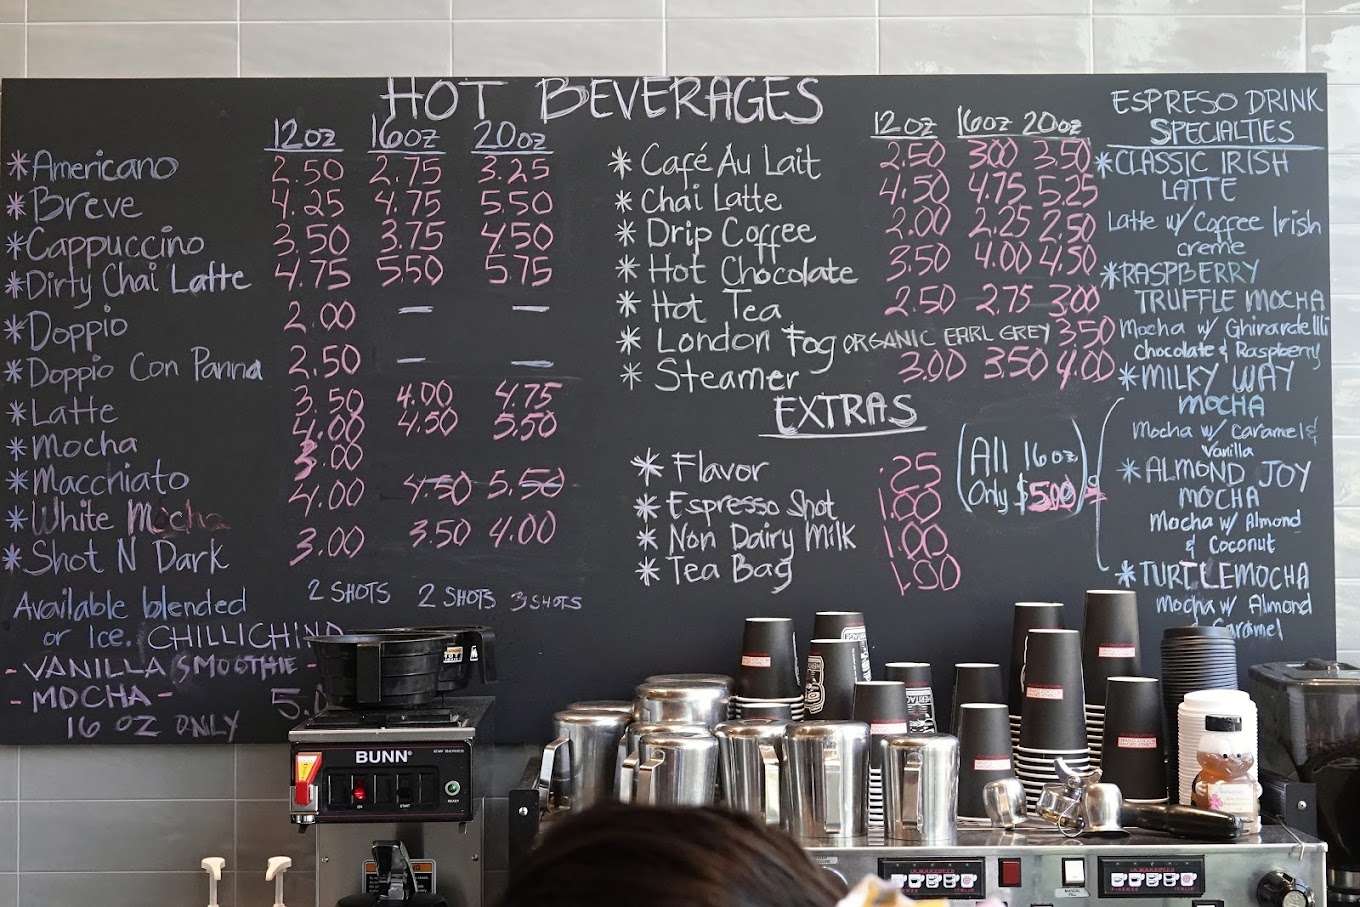 HOT BEVERAGES
12oz 16oz 20oz
*Americano 2.50 2.75 3.25
*Breve 4.25 4.75 5.50
*Cappuccino 3.50 3.75 4.50
*Dirty Chai Latte 4.75 5.50 5.75
*Doppio 2.00 — —
*Doppio Con Panna 2.50 — —
*Latte 3.50 4.00 4.75
*Mocha 4.00 4.50 5.50
*Macchiato 3.00
*White Mocha 4.00 4.50 5.50
*Shot N Dark 3.00 3.50 4.00
2 SHOTS 2 SHOTS 3 SHOTS
Available blended
or Ice. CHILLICHINO
-VANILLA SMOOTHIE-
-MOCHA- 5.
16 OZ ONLY
12oz 16oz 20oz
*Café Au Lait 2.50 3.00 3.50
*Chai Latte 4.50 4.75 5.25
*Drip Coffee 2.00 2.25 2.50
*Hot Chocolate 3.50 4.00 4.50
*Hot Tea 2.50 2.75 3.00
*London Fog ORGANIC EARL GREY 3.50
*Steamer 3.00 3.50 4.00
EXTRAS
*Flavor .25
*Espresso Shot 1.00
*Non Dairy Milk 1.00
*Tea Bag 1.00
(All 16oz)
(Only $5.00)
ESPRESO DRINK
SPECIALTIES
*CLASSIC IRISH
LATTE
Latte w/ Coffee Irish
creme
*RASPBERRY
TRUFFLE MOCHA
Mocha w/ Ghirardelli
Chocolate & Raspberry
*MILKY WAY
MOCHA
Mocha w/ Caramel &
Vanilla
*ALMOND JOY
MOCHA
Mocha w/ Almond
& Coconut
*TURTLE MOCHA
Mocha w/ Almond
Caramel
BUNN
ON
START
READY